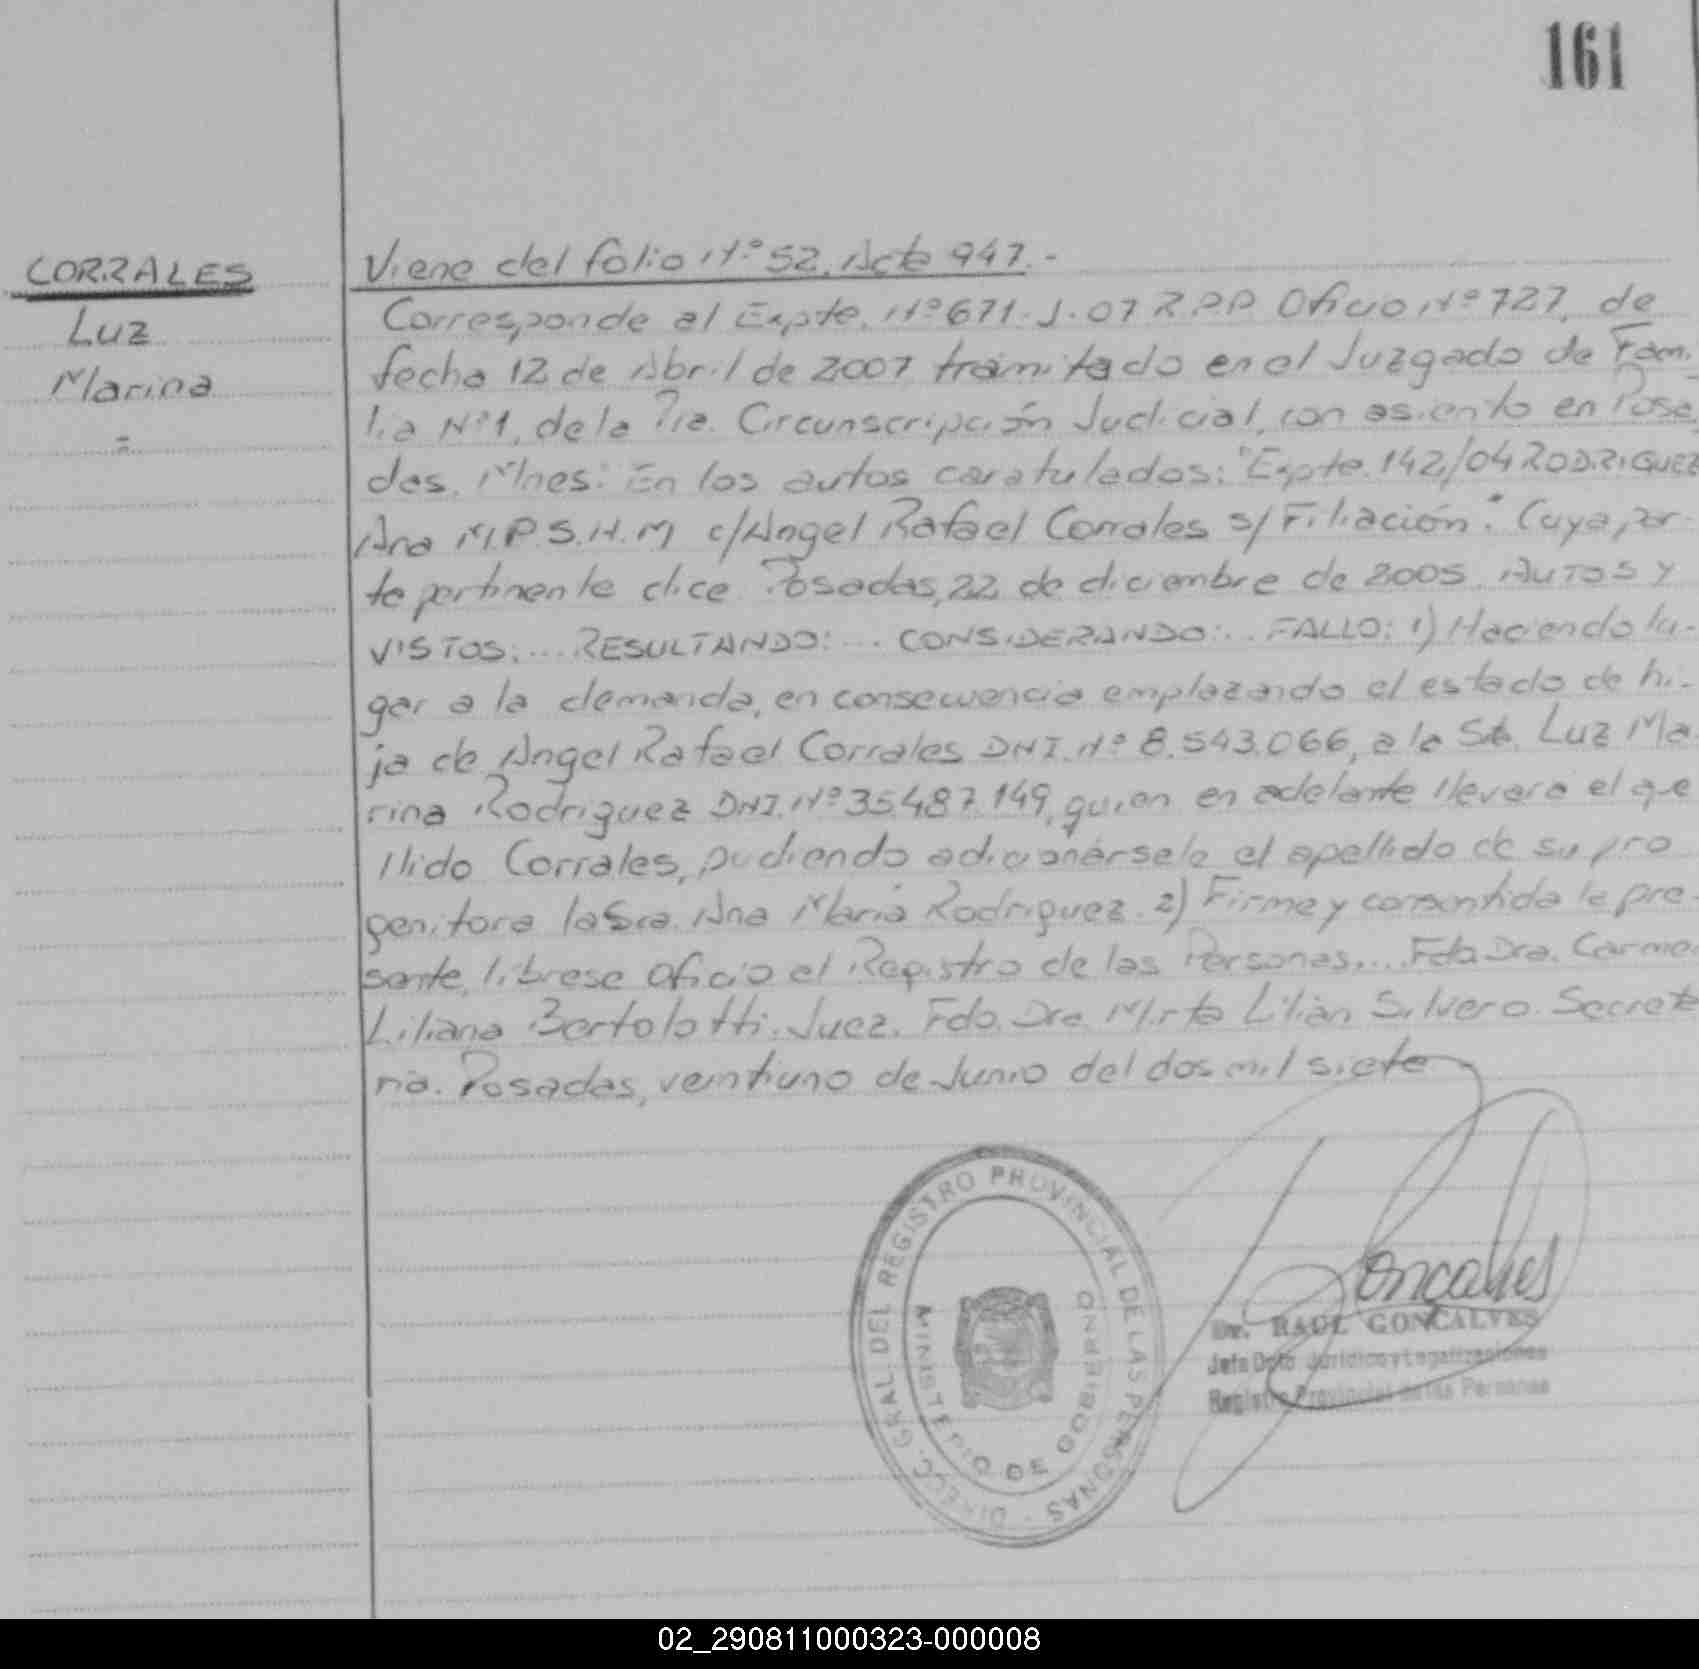 161
CORRALES
Luz
Marina
=
Viene del folio Nº 52. Acta 947.-
Corresponde al Expte. Nº 671.J.07 R.P.P. Oficio Nº 727, de
fecha 12 de Abril de 2007 tramitado en el Juzgado de Fami
lia Nº1, de la 1ra. Circunscripción Judicial, con asiento en Posa
das, Mnes: En los autos caratulados: "Expte. 142/04 RODRIGUEZ
Ana M.P.S.H.M c/Angel Rafael Corrales s/ Filiación". Cuya par-
te pertinente dice Posadas, 22 de diciembre de 2005. AUTOS Y
VISTOS:... RESULTANDO: ... CONSIDERANDO:.. FALLO: 1) Haciendo lu-
gar a la demanda, en consecuencia emplazando el estado de hi-
ja de Angel Rafael Corrales DNI. Nº 8.543.066, a la Sta. Luz Ma
rina Rodriguez DNI. Nº 35.487.149, quien en adelante llevará el ape
llido Corrales, pudiendo adicionársele el apellido de su pro
genitora la Sra. Ana María Rodriguez. 2) Firme y consentida la pre-
sente, librese oficio al Registro de las Personas.... Fdo Dra. Carme
Liliana Bertolotti. Juez. Fdo. Dra. Mirta Lilian Silvero. Secreta
ria. Posadas, veintiuno de Junio del dos mil siete
DIRECC. GRAL. DEL REGISTRO PROVINCIAL DE LAS PERSONAS
MINISTERIO DE GOBIERNO
Gonçalves
Dr. RAUL GONCALVES
Jefe Dpto Jurídico y Legalizaciones
Registro Provincial de las Personas
02_290811000323-000008